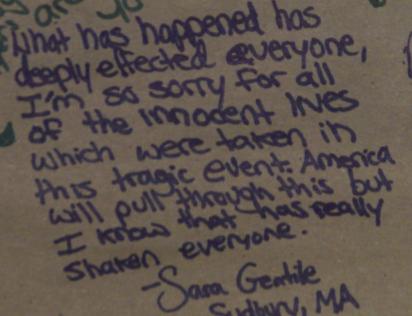 What has happened has
deeply effected everyone,
I'm so sorry for all
of the innocent lives
which were taken in
this tragic event. America
will pull through this but
I know that has really
shaken everyone.
-Sara Gentile
Sudbury, MA